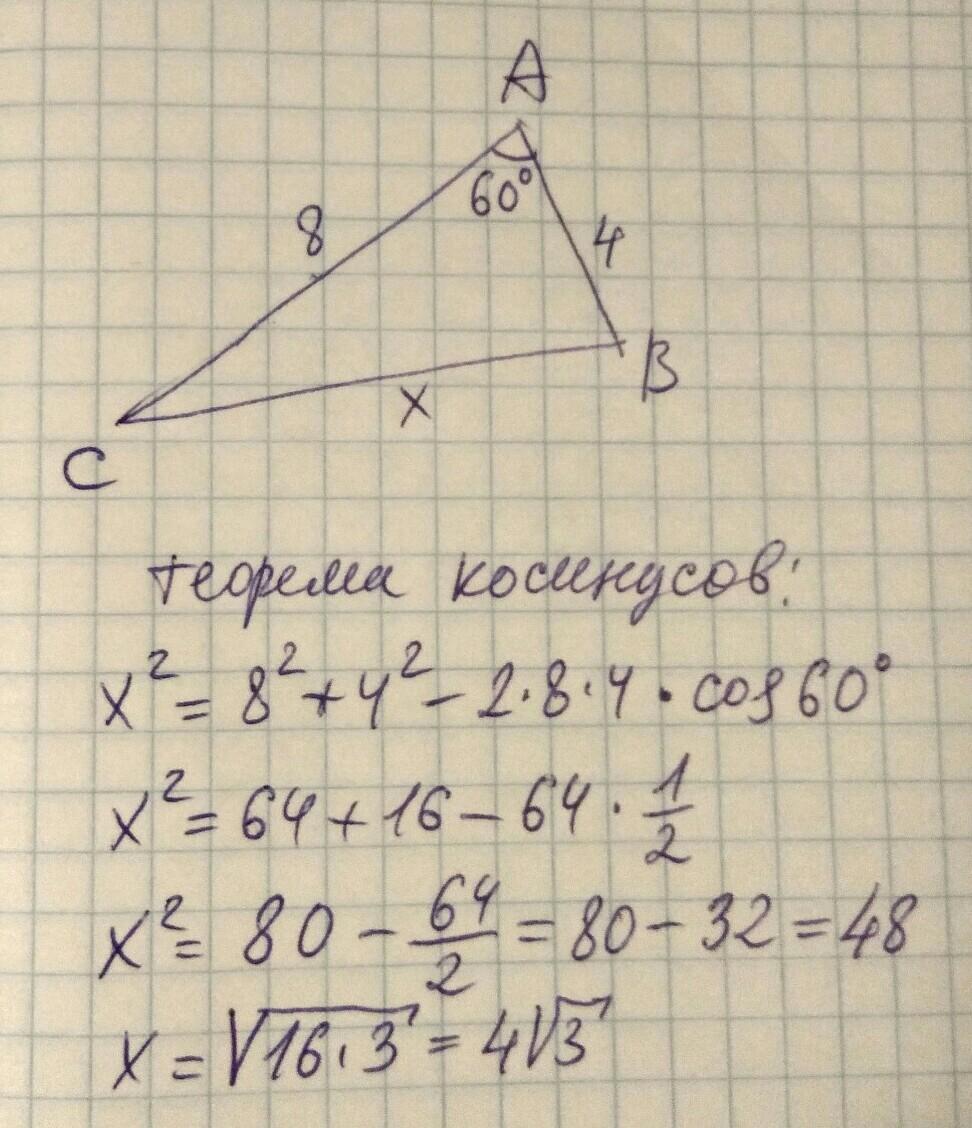 A
60°
8
4
B
x
C
теорема косинусов:
x² = 8² + 4² − 2·8·4 · cos 60°
x² = 64 + 16 − 64 · 1/2
x² = 80 − 64/2 = 80 − 32 = 48
x = √16·3 = 4√3